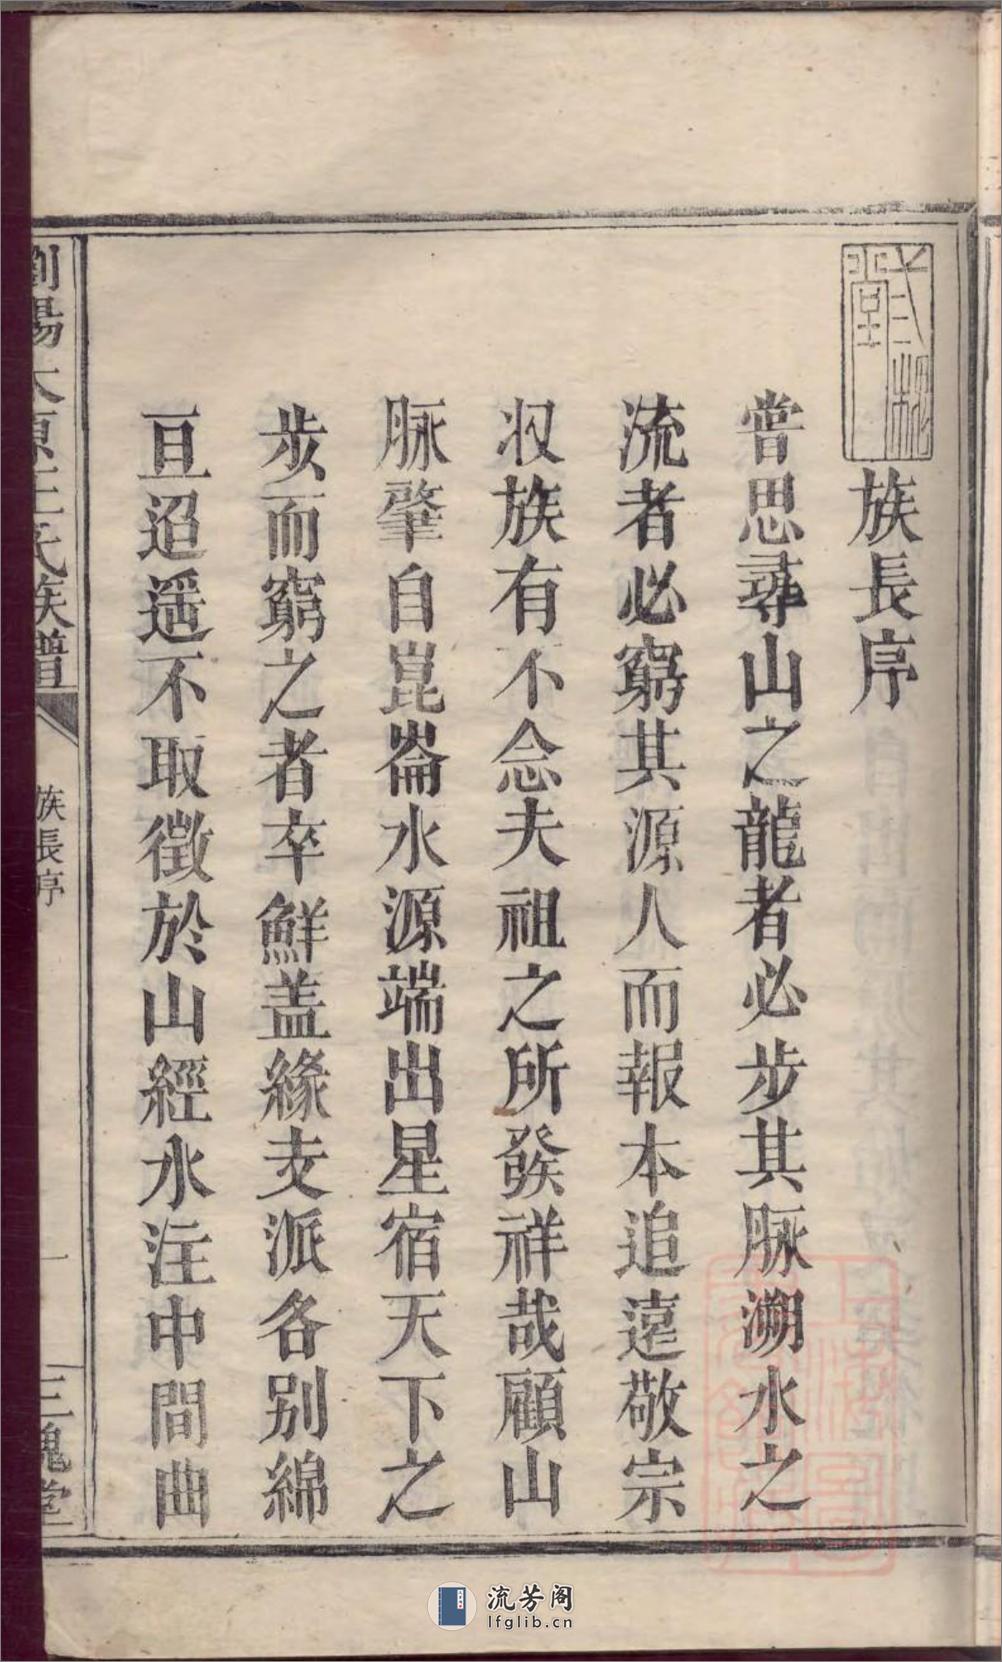 族長序
嘗思尋山之龍者必步其脉溯水之
流者必窮其源人而報本追遠敬宗
収族有不念夫祖之所發祥哉顧山
脉肇自崑崙水源端出星宿天下之
步而窮之者卒鮮盖緣支派各別綿
亘迢遥不取徵於山經水注中間曲
瀏陽太原王氏族譜
族長序
一
三槐堂
流芳阁
lfglib.cn